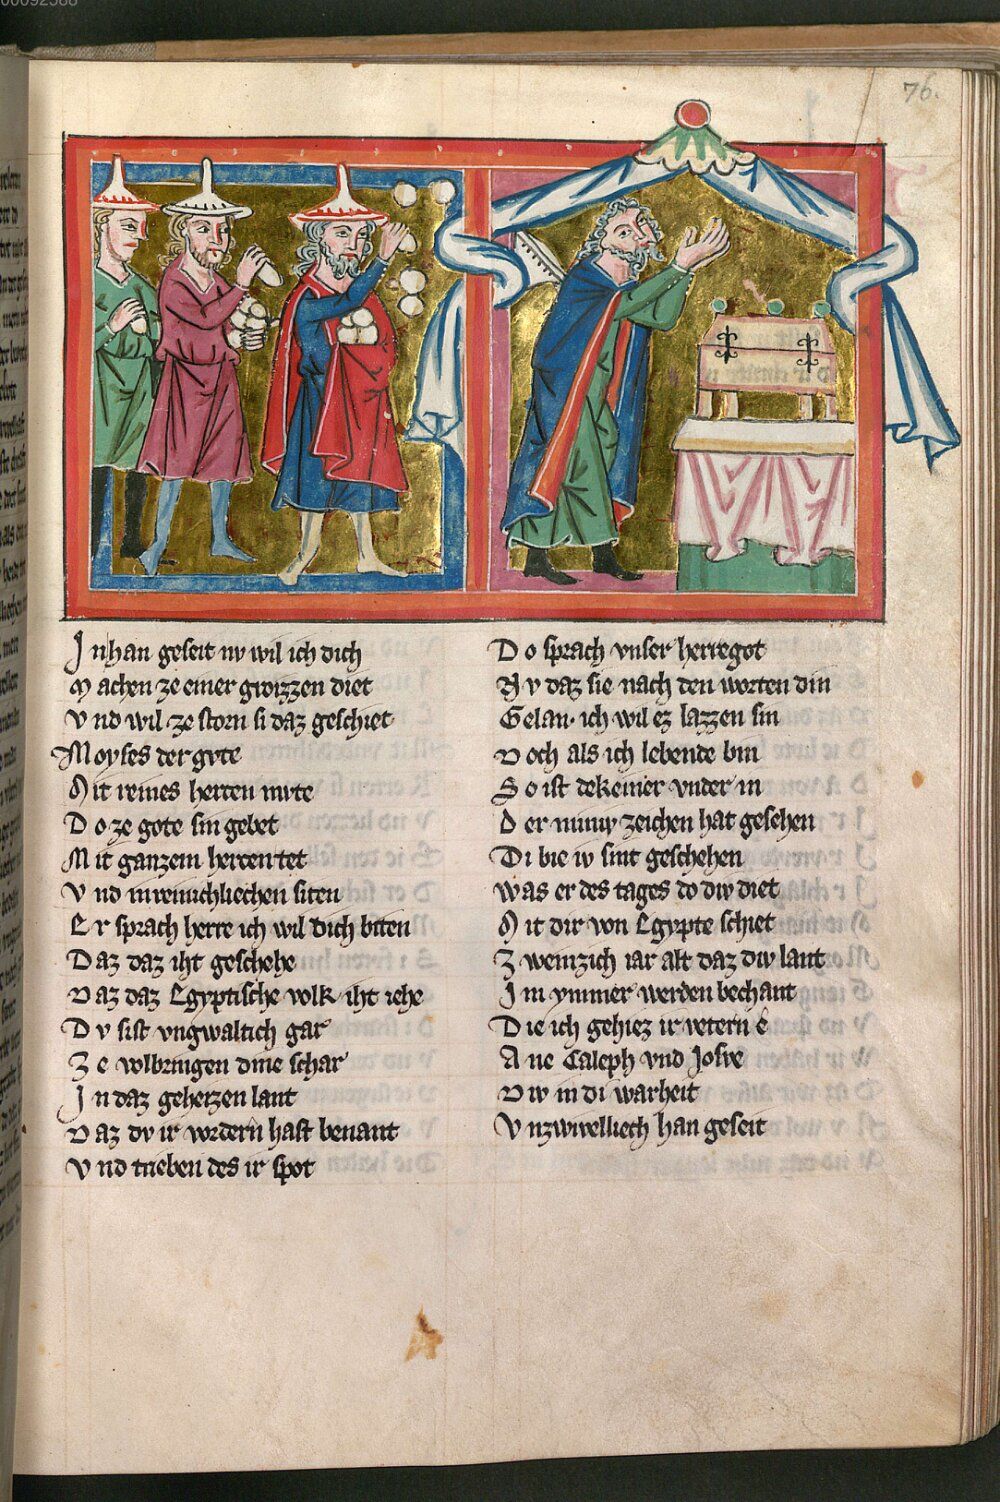 00092588
76.
Jn han geseit nv wil ich dich
Machen ze einer grozzen diet
Vnd wil ze storn si daz geschiet
Moyses der gvte
Mit reines herten mvte
Do ze gote sin gebet
Mit ganzem herten tet
Vnd mrenuchliechen siten
Er sprach herre ich wil dich biten
Daz daz iht geschehe
Daz daz Egyptische volk iht iehe
Dv sist vngwaltich gar
Ze volbringen dine schar
Jn daz geheizen lant
Daz dv ir vordern hast benant
Vnd trieben des ir spot
Do sprach vnser herregot
Nv daz sie nach den worten din
Gelan· ich wil ez lazzen sin
Doch als ich lebende bin
So ist dekeiner vnder in
Der miniv zeichen hat gesehen
Di bie iv sint geschehen
Was er des tages do div diet
Mit dir von Egypte schiet
Zweinzich iar alt daz div lant
Jm ymmer werden bechant
Die ich gehiez ir vetern e
Ane Caleph vnd Josve
Div in di warheit
Vnzwivelliech han geseit